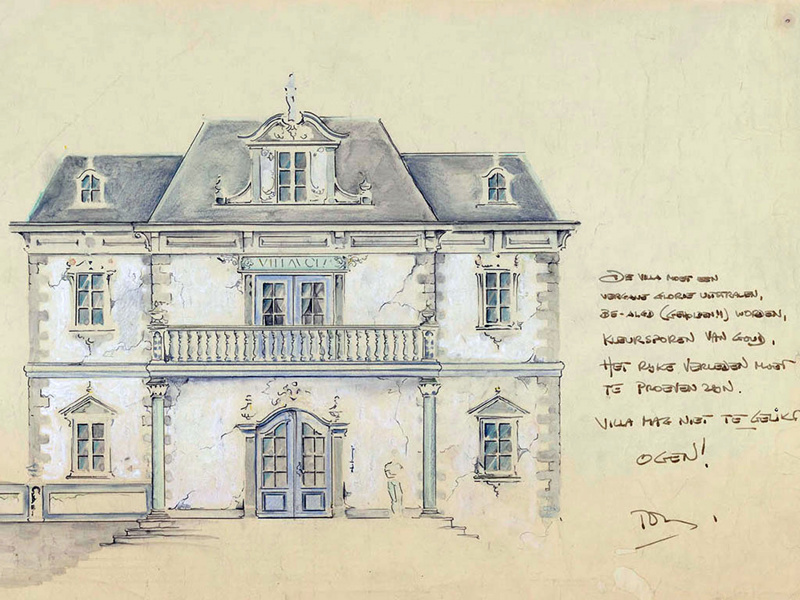 VILLA VOLTA
DE VILLA MOET EEN
VERGANE GLORIE UITSTRALEN,
BE-ALGD (GEPLEEMD) WORDEN,
KLEURSPOREN VAN GOUD,
HET RIJKE VERLEDEN MOET
TE PROEVEN ZIJN.
VILLA MAG NIET TE GELIKT
OGEN!